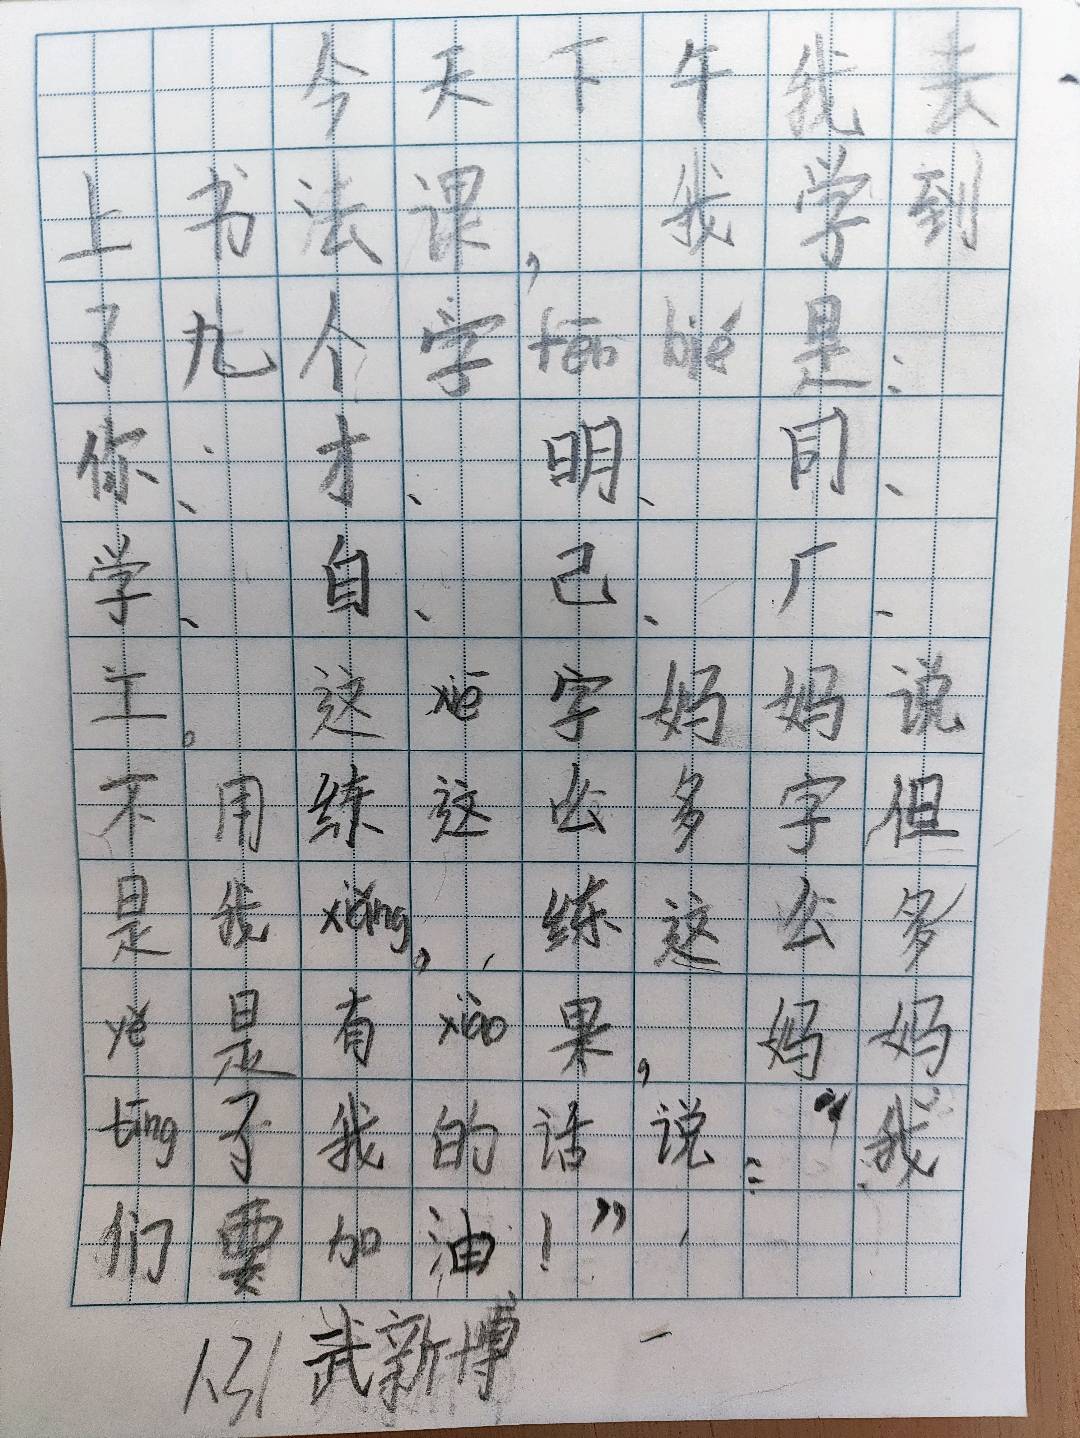 今天下午我去
上书法课，我学到
了九个字fēn bié是：
你、才、明、同、
学、自、己、厂、
主。这xiē字妈妈说
不用练这么多字但
是我xiǎng，练这么多
yě是有xiào果，妈妈
tīng了我的话说：“我
们要加油！”
131武新博